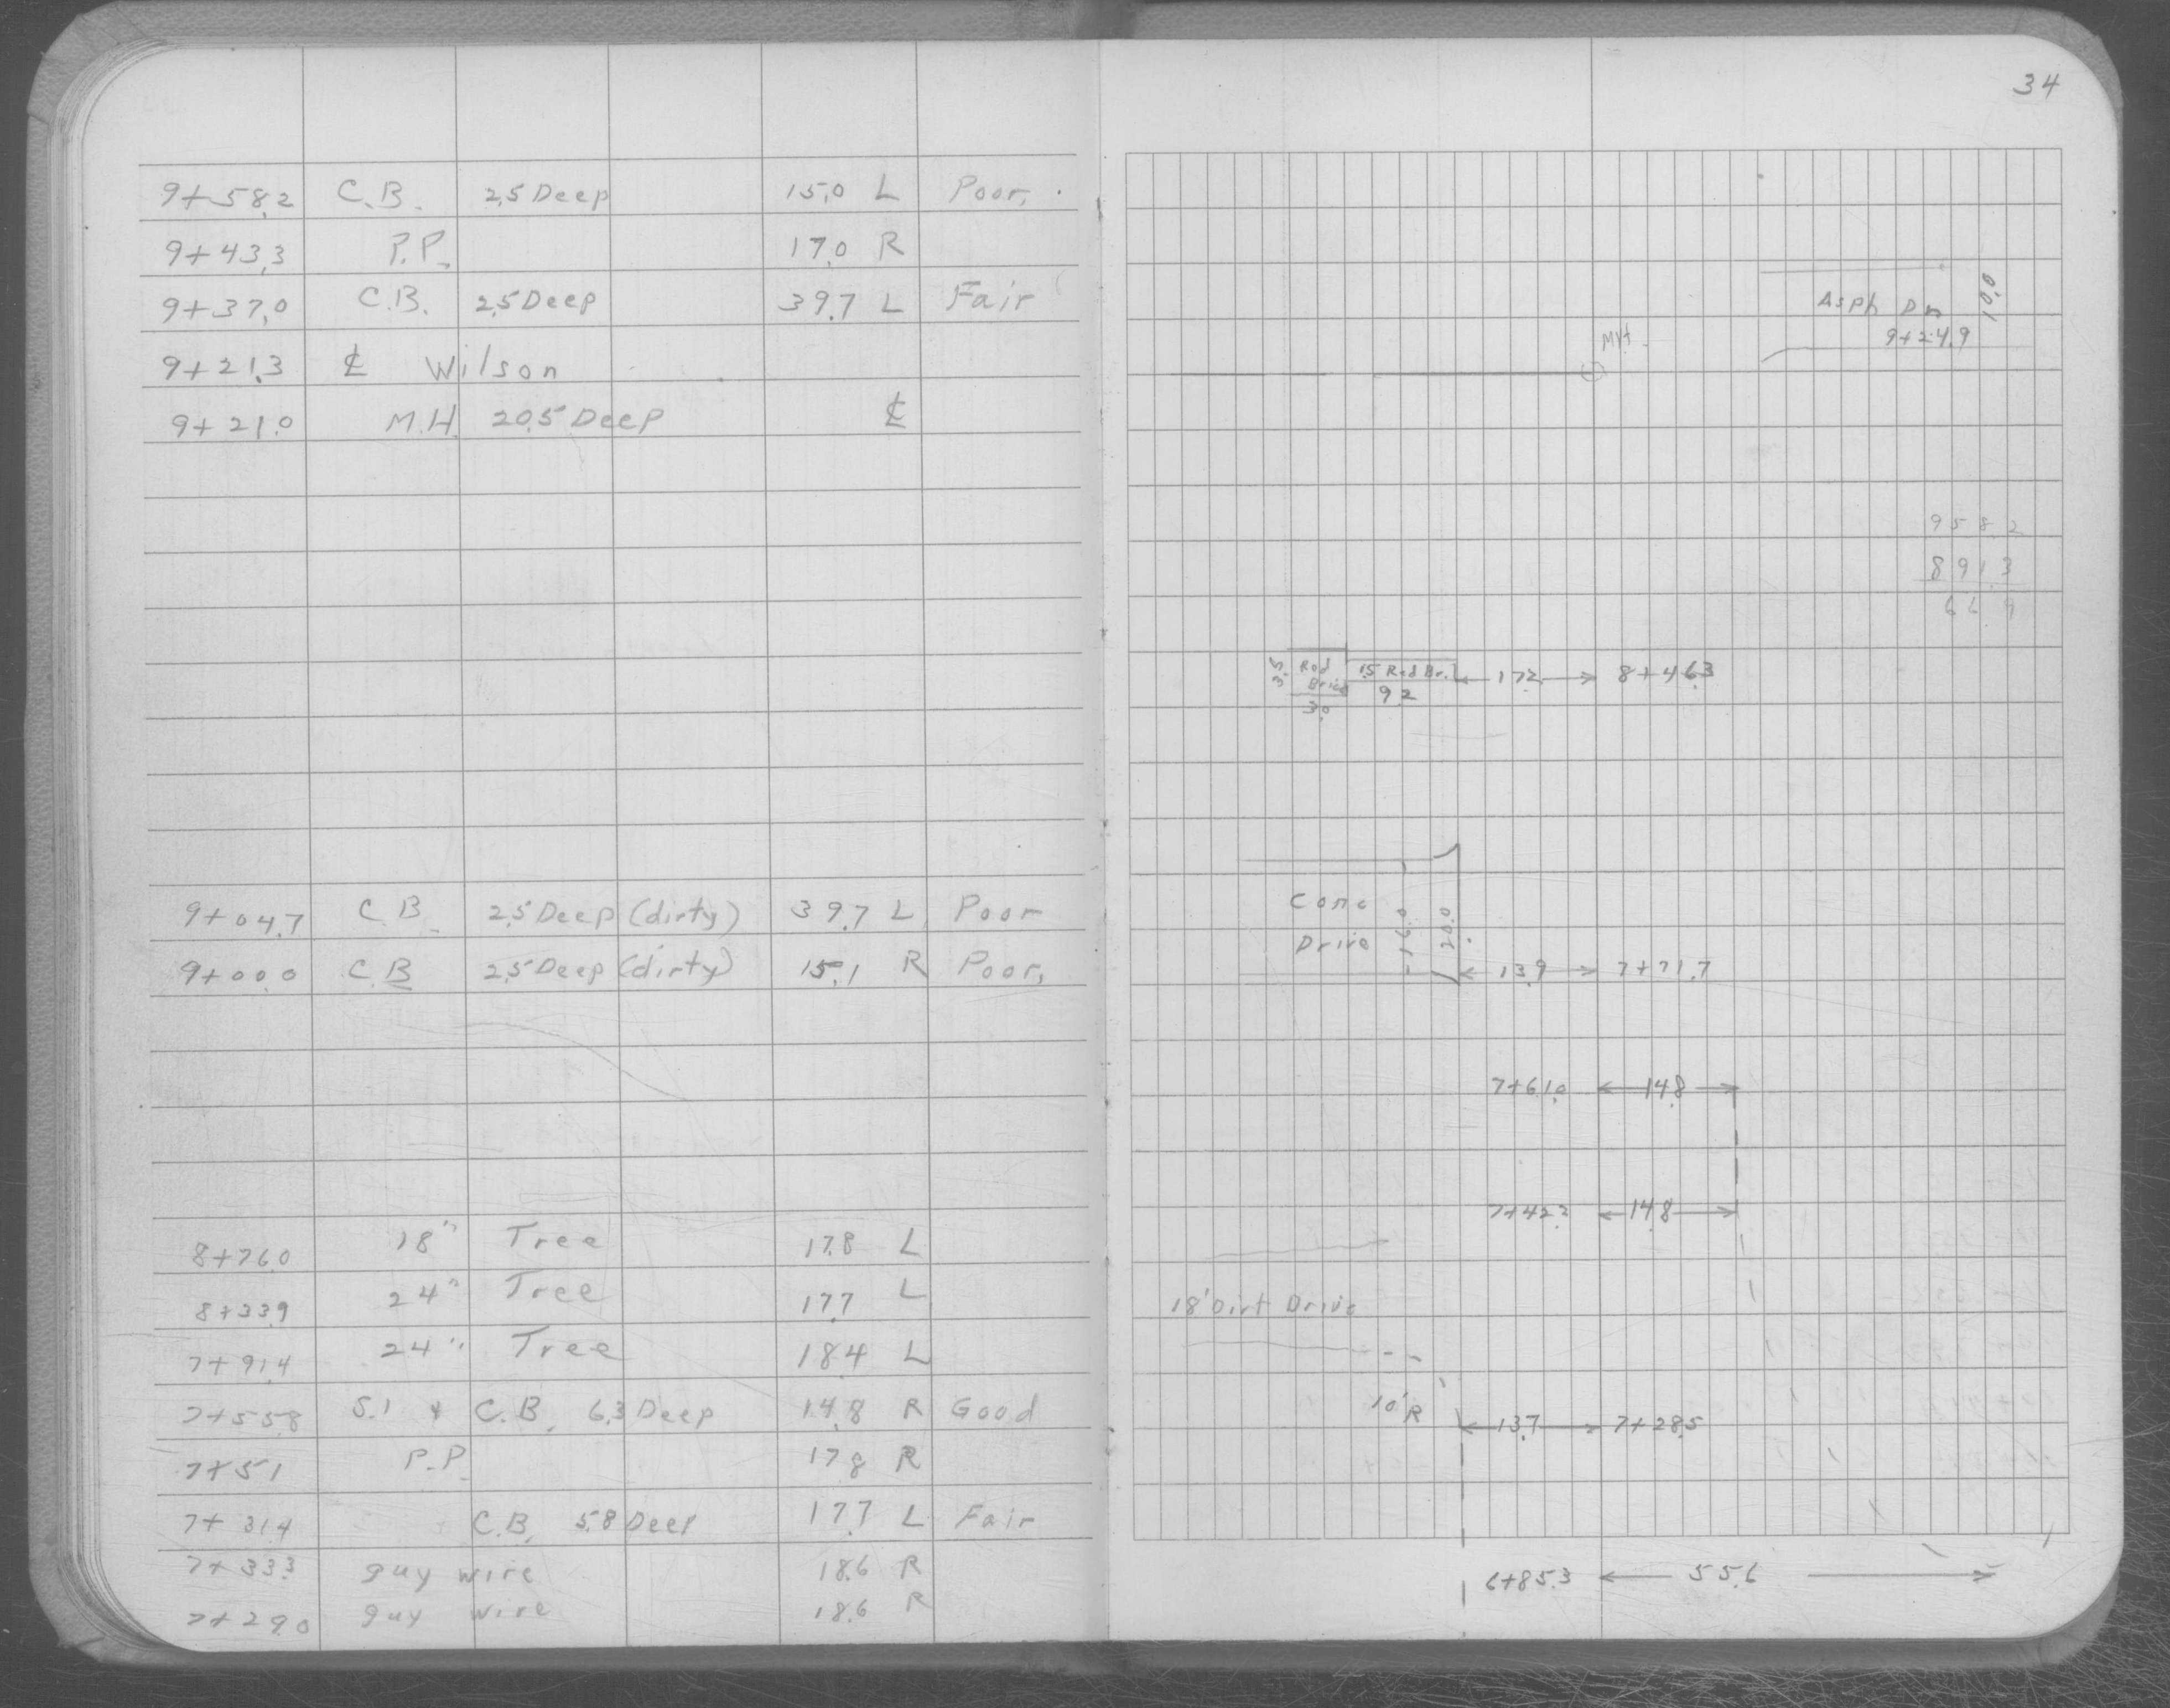 34
9+58.2 C.B. 2.5 Deep 15.0 L Poor.
9+43.3 P.P. 17.0 R
9+37.0 C.B. 2.5 Deep 39.7 L Fair
9+21.3 ℄ Wilson
9+21.0 M.H. 20.5 Deep ℄
9+04.7 C.B. 2.5 Deep (dirty) 39.7 L Poor
9+00.0 C.B 2.5 Deep (dirty) 15.1 R Poor.
8+76.0 18" Tree 17.8 L
8+33.9 24" Tree 17.7 L
7+91.4 24" Tree 18.4 L
7+55.8 S.I & C.B. 6.3 Deep 14.8 R Good
7+51 P.P. 17.8 R
7+31.4 C.B. 5.8 Deep 17.7 L Fair
7+33.3 guy wire 18.6 R
7+29.0 guy wire 18.6 R
Asph Dr 10.0
9+24.9
M.H.
958.2
891.3
66.9
3.5 Red Brick 1.5 Red Br. 17.2 8+46.3
3.0 9.2
Conc
Drive 16.0 20.0
13.9 7+71.7
7+61.0 14.8
7+42.2 14.8
18' Dirt Drive
10' R 13.7 7+28.5
6+85.3 55.6